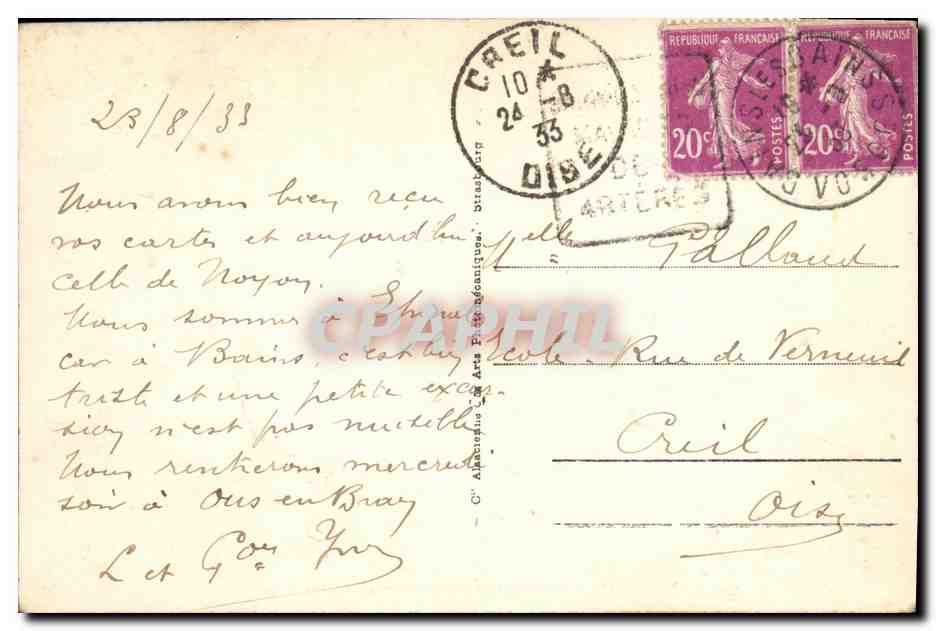 23/8/33
Nous avons bien reçu
vos cartes et aujourd'hui
celle de Noyon.
Nous sommes à Epinal
car à Bains, c'est bien
triste et une petite excur-
sion n'est pas nuisible
Nous rentrerons mercredi
soir à Ons en Bray
L et
Cie Alsacienne des Arts Photomécaniques. Strasbourg
CREIL
10 *
24 -8
33
OISE
DE
ARTÈRES
REPUBLIQUE FRANÇAISE
20c
POSTES
REPUBLIQUE FRANÇAISE
20c
POSTES
BAINS LES BAINS
VOSGES
Melle Palland
Ecole. Rue de Verneuil
Creil
Oise
CPAPHIL